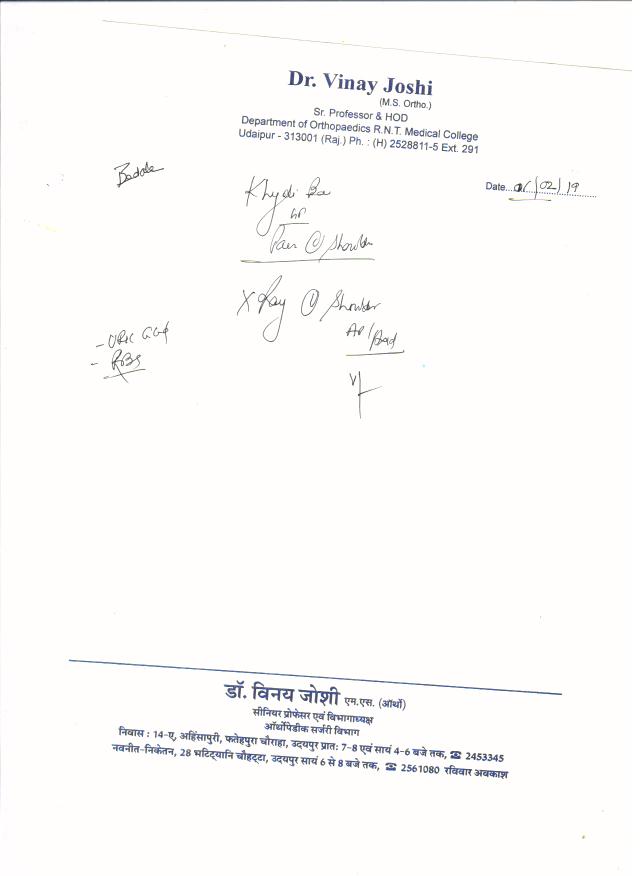 Dr. Vinay Joshi
(M.S. Ortho.)
Sr. Professor & HOD
Department of Orthopaedics R.N.T. Medical College
Udaipur - 313001 (Raj.) Ph. : (H) 2528811-5 Ext. 291
Date... /02/19
Pain Shoulder
X Ray Shoulder
AP/
- Uric
- RBS
डॉ. विनय जोशी एम.एस. (ऑर्थो)
सीनियर प्रोफेसर एवं विभागाध्यक्ष
ऑर्थोपेडीक सर्जरी विभाग
निवास : 14-ए, अहिंसापुरी, फतेहपुरा चौराहा, उदयपुर प्रातः 7-8 एवं सायं 4-6 बजे तक, ☎ 2453345
नवनीत-निकेतन, 28 भटि्टयानि चौहट्टा, उदयपुर सायं 6 से 8 बजे तक, ☎ 2561080 रविवार अवकाश